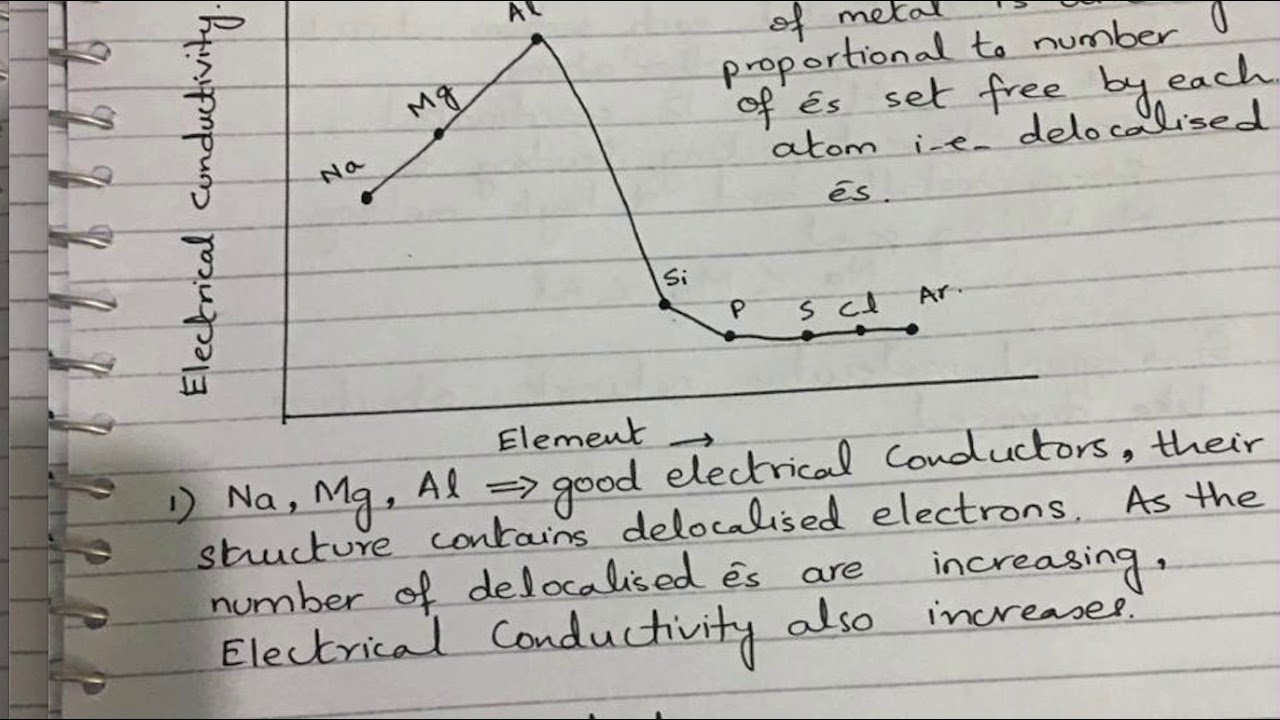 Electrical Conductivity.
Al
Mg
Na
Si
P
S
Cl
Ar.
of metal is
proportional to number
of ēs set free by each
atom i-e- delocalised
ēs.
Element →
1) Na, Mg, Al ⇒ good electrical Conductors, their
structure contains delocalised electrons. As the
number of delocalised ēs are increasing,
Electrical Conductivity also increases.